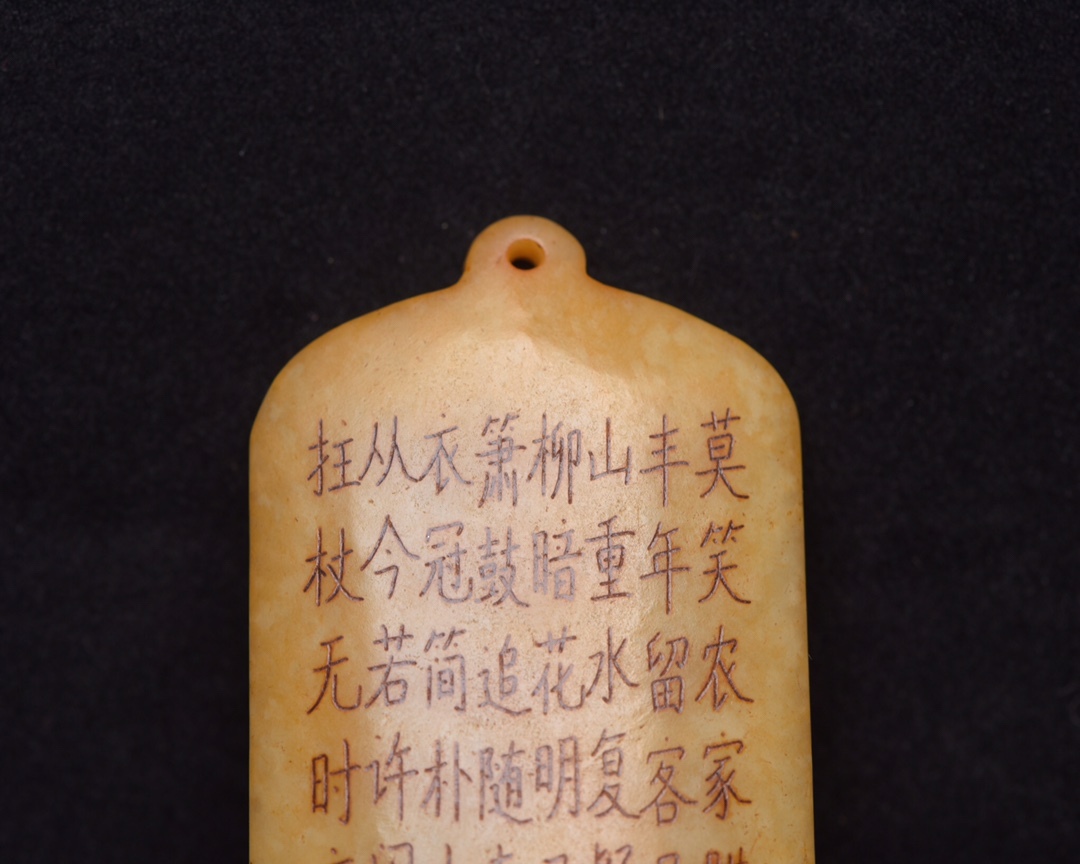 莫笑农家
丰年留客
山重水复
柳暗花明
箫鼓追随
衣冠简朴
从今若许
拄杖无时